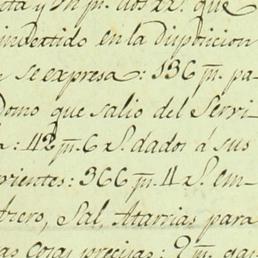 ta y un pº. dos rs. que
invertido en la disposicion
y se expresa: 136 ps. pa-
domo que salio del Servi-
a: 42 ps. 6 rs. dados á sus
rientes: 366 ps. 4 rs. em-
trero, Sal, Atarrias para
as cosas precisas: 9 ps. ga